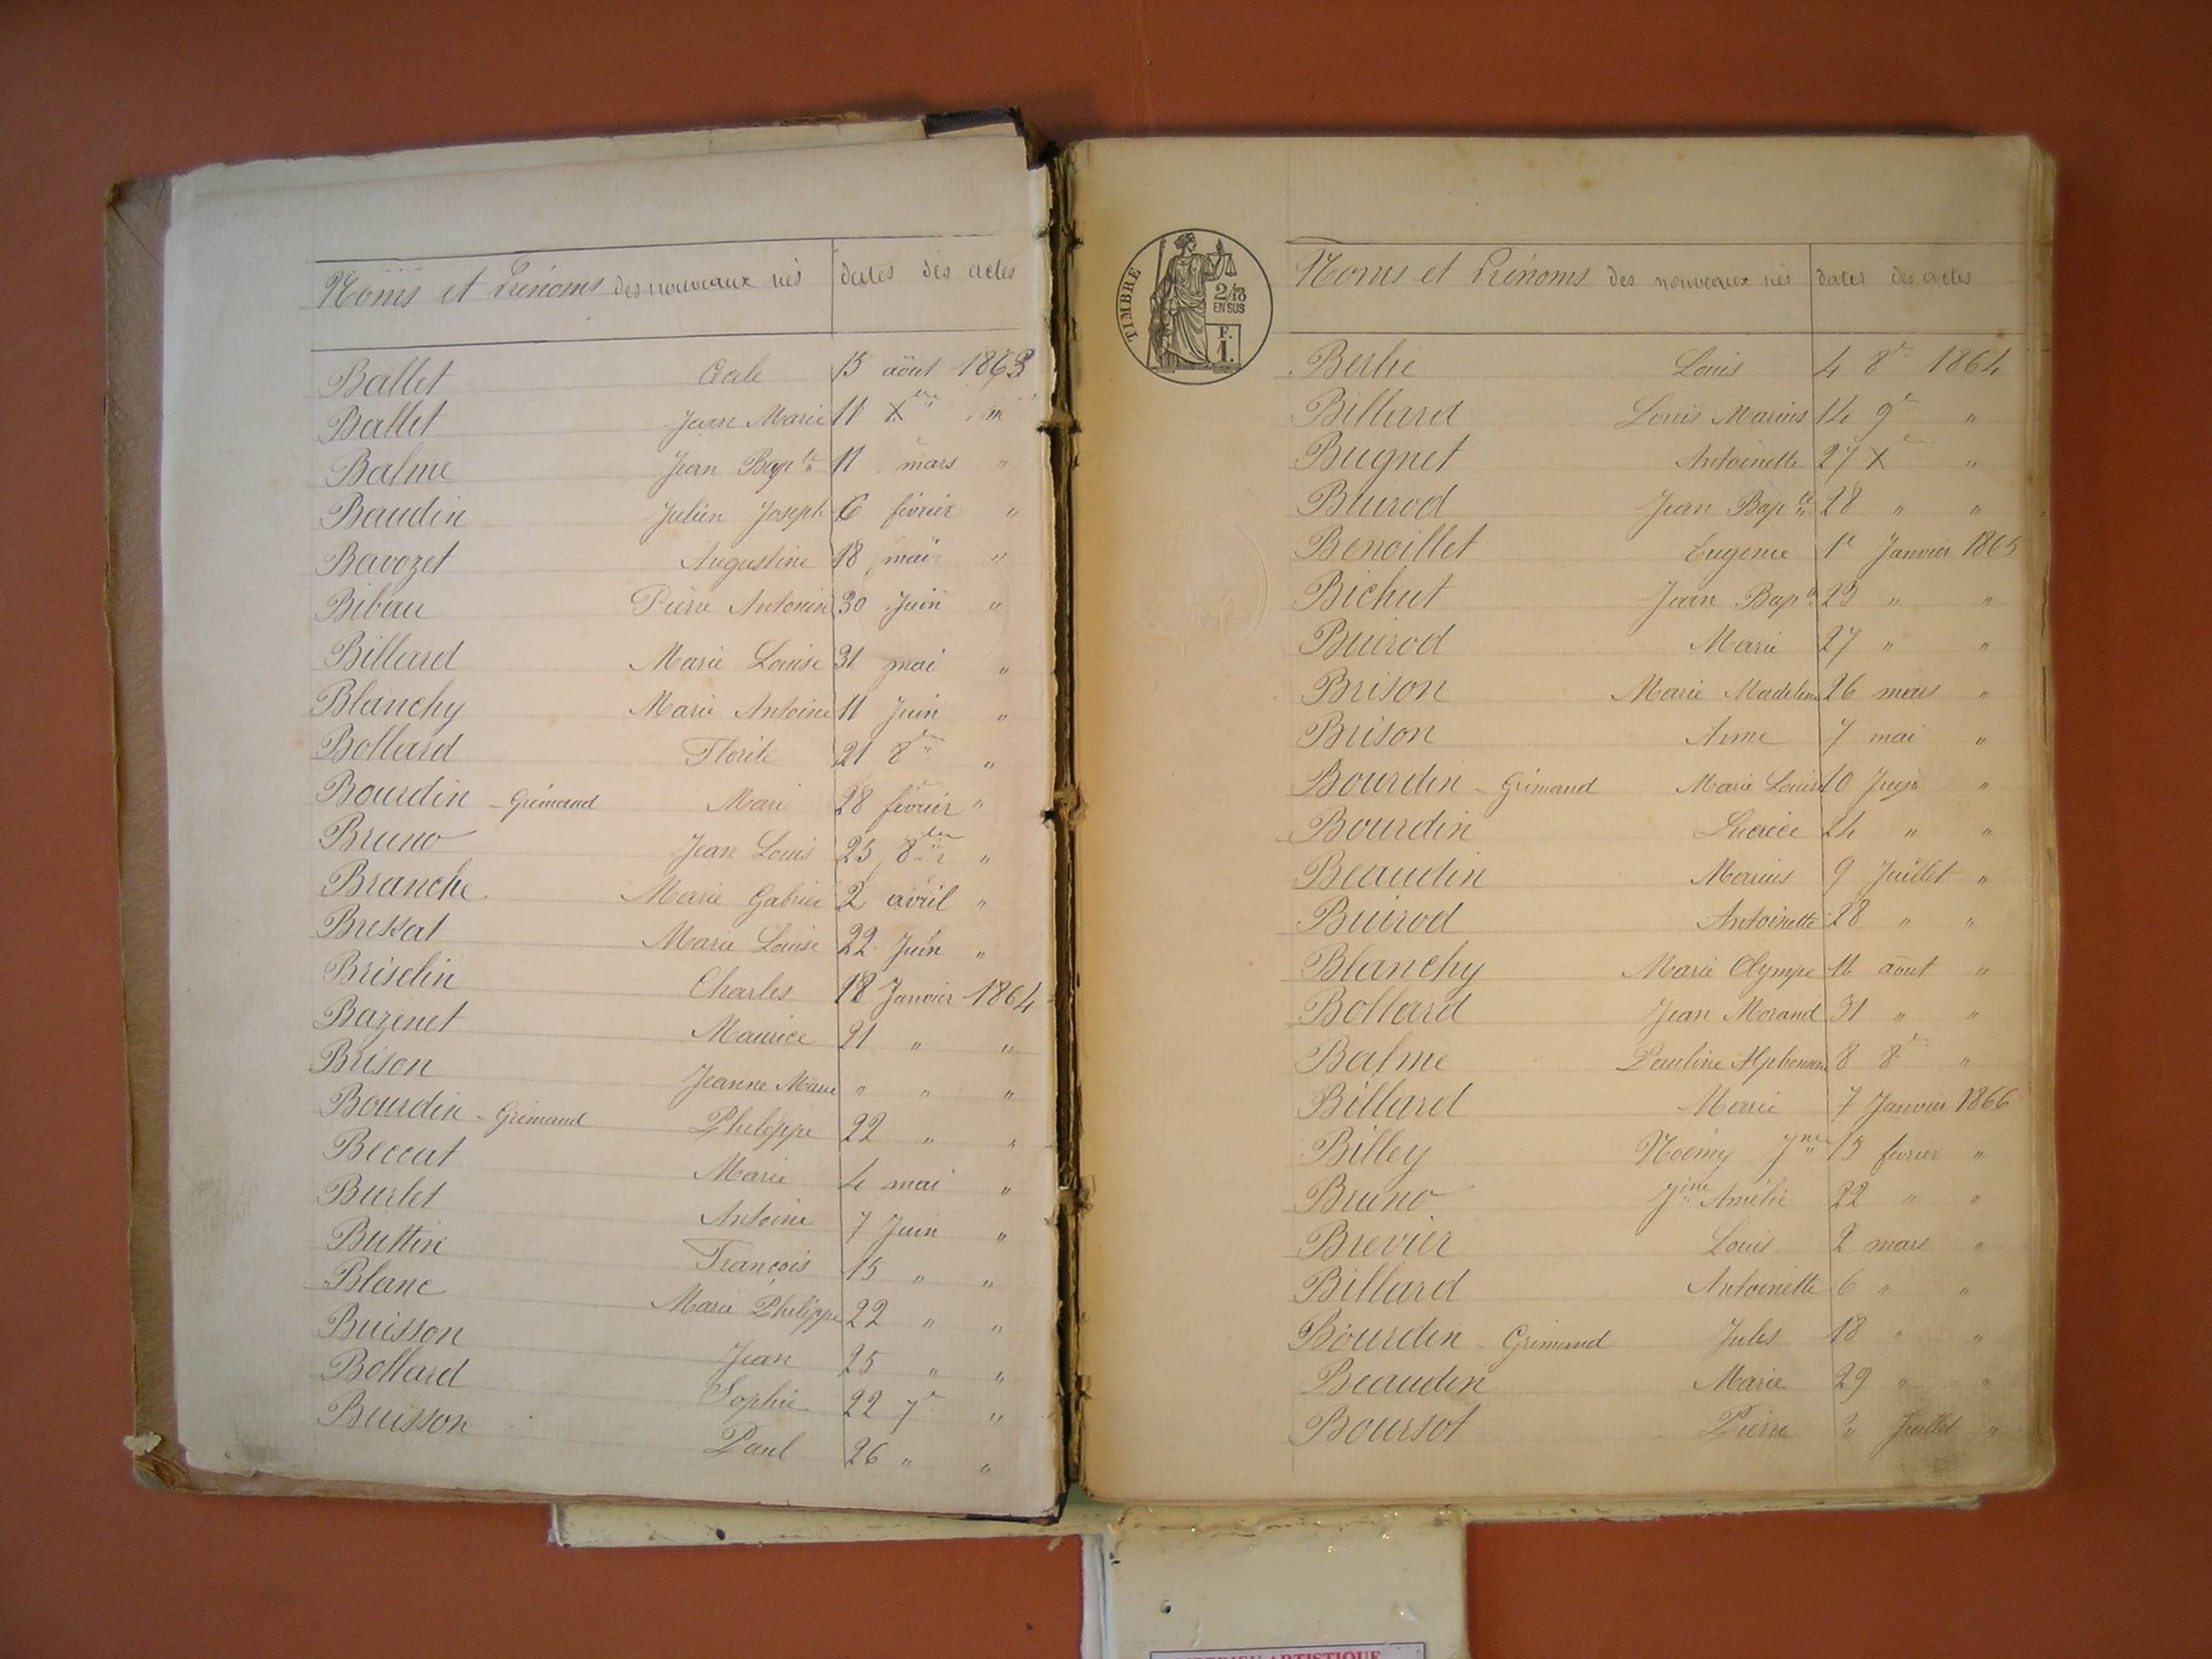 Noms et Prénoms des nouveaux nés dates des actes
Ballet Cécile 15 août 1863
Ballet Jean Marie 11 Xbre "
Balme Jean Bapte 11 mars "
Baudin Julien Joseph 6 février "
Bavozet Augustine 18 mai "
Bibau Pierre Antonin 30 Juin "
Billard Marie Louise 31 mai "
Blanchy Marie Antoine 11 Juin "
Bollard Florite 21 8bre "
Bourdin - Grimand Marie 28 février "
Bruno Jean Louis 25 8bre "
Branche Marie Gabriel 2 avril "
Bressat Marie Louise 22 Juin "
Briselin Charles 18 Janvier 1864
Bazenet Maurice 21 " "
Brison Jeanne Marie " " "
Bourdin - Grimand Philippe 22 " "
Beccat Marie 4 mai "
Burlet Antoine 7 Juin "
Buttin François 15 " "
Blanc Marie Philippe 22 " "
Buisson Jean 25 " "
Bollard Sophie 22 7e "
Buisson Paul 26 " "
TIMBRE
2/10
EN SUS
F.
1.
Noms et Prénoms des nouveaux nés dates des actes
Berlie Louis 4 8e 1864
Billard Louis Marius 14 9e "
Bugnet Antoinette 27 Xe "
Buirod Jean Bapte 28 " "
Benoillet Eugenie 1e Janvier 1865
Bichut Jean Bapte 23 " "
Buirod Marie 27 " "
Brison Marie Madeleine 26 mars "
Brison Anne 7 mai "
Bourdin - Grimand Marie Louise 10 Juin "
Bourdin Lucrèce 24 " "
Beaudin Marius 9 Juillet "
Buirod Antoinette 28 " "
Blanchy Marie Olympe 11 août "
Bollard Jean Morand 31 " "
Balme Pauline Alphonsine 8 8e "
Billard Marie 7 Janvier 1866
Billey Noémy Jne 15 février "
Bruno Jine Amélie 22 " "
Brevier Louis 2 mars "
Billard Antoinette 6 " "
Bourdin - Grimand Jules 18 " "
Beaudin Marie 29 " "
Boursot Pierre Juillet "
ARTISTIQUE